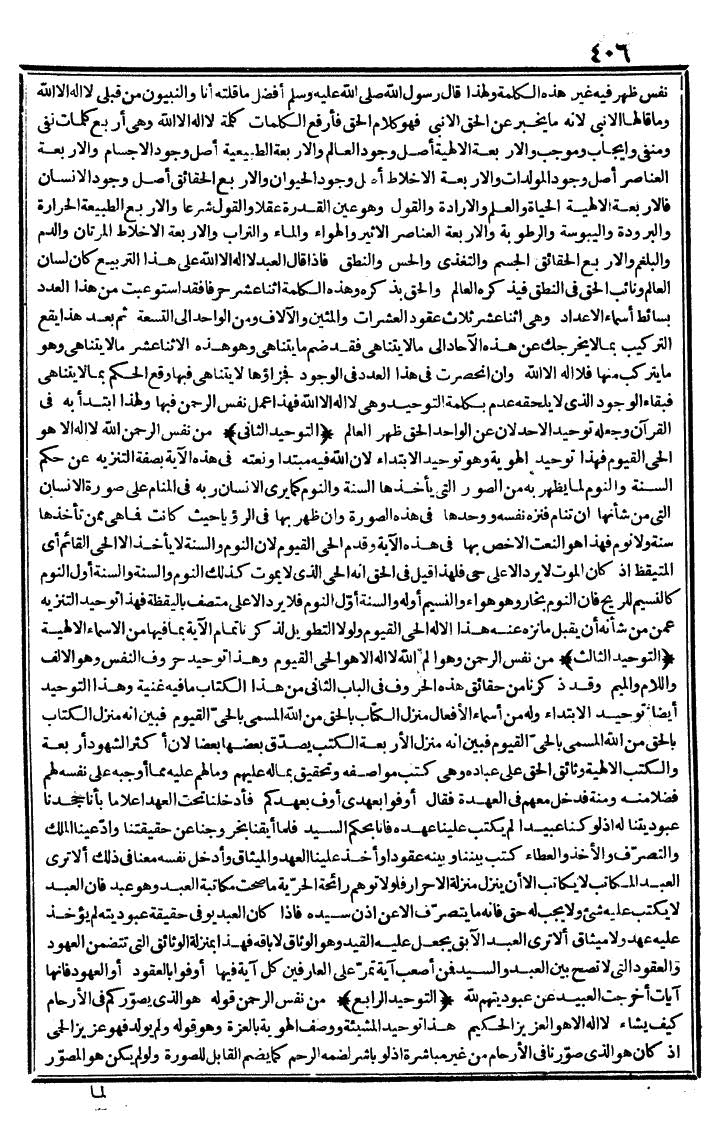 ٤٠٦
نفس ظهر فيه غير هذه الكلمة ولهذا قال رسول الله صلى الله عليه وسلم أفضل ما قلته أنا والنبيون من قبلي لا اله الا الله
وما قالها الا نبي لانه ما يخبر عن الحق الا نبي فهو كلام الحق فأرفع الكلمات كلمة لا اله الا الله وهي أربع كلمات نفي
ومنفي وايجاب وموجب والاربعة الالهية أصل وجود العالم والاربعة الطبيعية أصل وجود الاجسام والاربعة
العناصر أصل وجود المولدات والاربعة الاخلاط أصل وجود الحيوان والاربع الحقائق أصل وجود الانسان
فالاربعة الالهية الحياة والعلم والارادة والقول وهو عين القدرة عقلا والقول شرعا والاربع الطبيعة الحرارة
والبرودة واليبوسة والرطوبة والاربعة العناصر الاثير والهواء والماء والتراب والاربعة الاخلاط المرتان والدم
والبلغم والاربع الحقائق الجسم والتغذي والحس والنطق فاذا قال العبد لا اله الا الله على هذا التربيع كان لسان
العالم ونائب الحق في النطق فيذكره العالم والحق بذكره وهذه الكلمة اثنا عشر حرفا فقد استوعبت من هذا العدد
بسائط أسماء الاعداد وهي اثنا عشر ثلاث عقود العشرات والمئين والآلاف ومن الواحد الى التسعة ثم بعد هذا يقع
التركيب بما لا يخرجك عن هذه الآحاد الى ما لا يتناهى فقد ضم ما يتناهى وهو هذه الاثنا عشر ما لا يتناهى وهو
ما يتركب منها فلا اله الا الله وان انحصرت في هذا العدد في الوجود فجزاؤها لا يتناهى فبها وقع الحكم بما لا يتناهى
فبقاء الوجود الذي لا يلحقه عدم بكلمة التوحيد وهي لا اله الا الله فهذا عمل نفس الرحمن فيها ولهذا ابتدأ به في
القرآن وجعله توحيد الاحد لان عن الواحد الحق ظهر العالم ﴿التوحيد الثاني﴾ من نفس الرحمن الله لا اله الا هو
الحي القيوم فهذا توحيد الهوية وهو توحيد الابتداء لان الله فيه مبتدا ونعته في هذه الآية بصفة التنزيه عن حكم
السنة والنوم لما يظهر به من الصور التي يأخذها السنة والنوم كما يرى الانسان ربه في المنام على صورة الانسان
التي من شأنها ان تنام فنزه نفسه ووحدها في هذه الصورة وان ظهر بها في الرؤيا حيث كانت فما هي ممن تأخذها
سنة ولا نوم فهذا هو النعت الاخص بها في هذه الآية وقدم الحي القيوم لان النوم والسنة لا يأخذ الا الحي القائم أي
المتيقظ اذ كان الموت لا يرد الا على حي فلهذا قيل في الحق انه الحي الذي لا يموت كذلك النوم والسنة والسنة أول النوم
كالنسيم للريح فان النوم بخار وهو هواء والنسيم أوله والسنة أوّل النوم فلا يرد الا على متصف باليقظة فهذا توحيد التنزيه
عمن من شأنه أن يقبل ما نزه عنه هذا الاله الحي القيوم ولولا التطويل لذكرنا تمام الآية بما فيها من الاسماء الالهية
﴿التوحيد الثالث﴾ من نفس الرحمن وهو الم الله لا اله الا هو الحي القيوم وهذا توحيد حروف النفس وهو الالف
واللام والميم وقد ذكرنا من حقائق هذه الحروف في الباب الثاني من هذا الكتاب ما فيه غنية وهذا التوحيد
أيضا توحيد الابتداء وله من أسماء الأفعال منزل الكتاب بالحق من الله المسمى بالحيّ القيوم فبين انه منزل الكتاب
بالحق من الله المسمى بالحيّ القيوم فبين انه منزل الأربعة الكتب يصدّق بعضها بعضا لان أكثر الشهود أربعة
والكتب الالهية وثائق الحق على عباده وهي كتب مواصفه وتحقيق بما له عليهم وما لهم عليه مما أوجبه على نفسه لهم
فضلا منه ومنة فدخل معهم في العهدة فقال أوفوا بعهدي أوف بعهدكم فأدخلنا تحت العهد اعلاما بأنا جحدنا
عبوديتنا له اذ لو كنا عبيدا لم يكتب علينا عهده فانا بحكم السيد فلما أبقنا بخروجنا عن حقيقتنا وادّعينا الملك
والتصرّف والأخذ والعطاء كتب بيننا وبينه عقودا وأخذ علينا العهد والميثاق وأدخل نفسه معنا في ذلك ألا ترى
العبد المكاتب لا يكاتب الا أن ينزل منزلة الاحرار فلولا توهم رائحة الحرّية ما صحت مكاتبة العبد وهو عبد فان العبد
لا يكتب عليه شئ ولا يجب له حق فانه ما يتصرّف الا عن اذن سيده فاذا كان العبد يوفي حقيقة عبوديته لم يؤخذ
عليه عهد ولا ميثاق ألا ترى العبد الآبق يجعل عليه القيد وهو الوثاق لاباقه فهذا بمنزلة الوثائق التي تتضمن العهود
والعقود التي لا تصح بين العبد والسيد فن أصعب آية تمرّ على العارفين كل آية فيها أوفوا بالعقود أو العهود فانها
آيات أخرجت العبيد عن عبوديتهم لله ﴿التوحيد الرابع﴾ من نفس الرحمن قوله هو الذي يصوّركم في الأرحام
كيف يشاء لا اله الا هو العزيز الحكيم هذا توحيد المشيئة ووصف الهوية بالعزة وهو قوله ولم يولد فهو عزيز الحي
اذ كان هو الذي صوّرنا في الأرحام من غير مباشرة اذ لو باشر لضمه الرحم كما يضم القابل للصورة ولو لم يكن هو المصوّر
لما